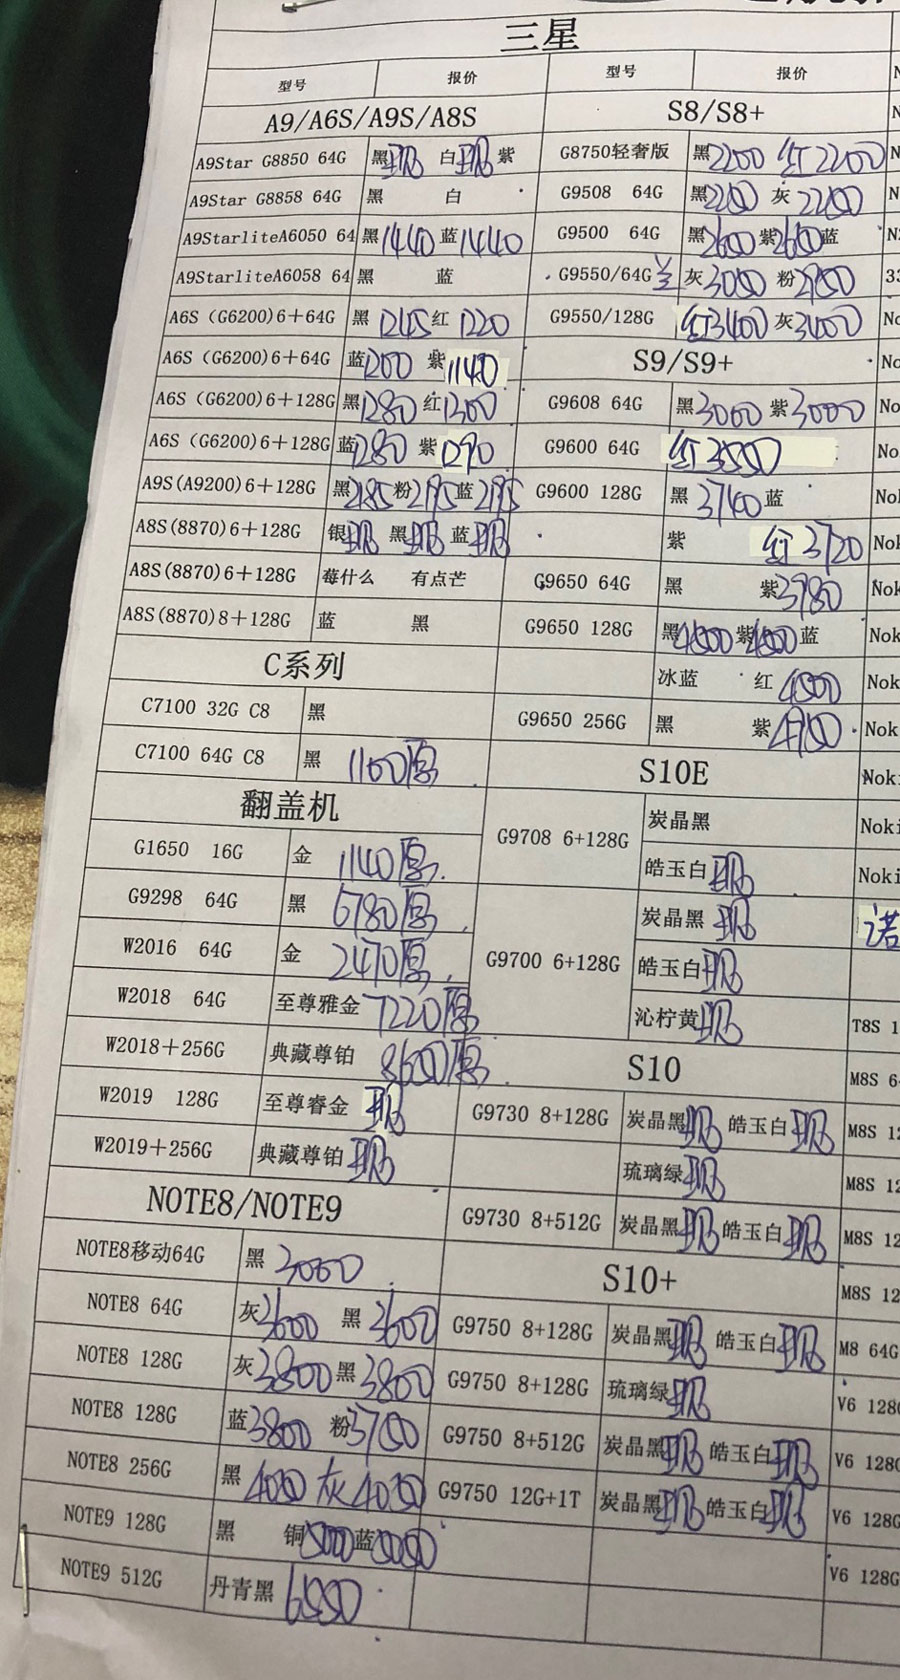 三星
型号 报价 型号 报价
A9/A6S/A9S/A8S S8/S8+
A9Star G8850 64G 黑现 白现 紫 G8750轻奢版 黑2200 红2200
A9Star G8858 64G 黑 白 G9508 64G 黑2200 灰2200
A9StarliteA6050 64 黑1440 蓝1440 G9500 64G 黑2600 紫2600 蓝
A9StarliteA6058 64 黑 蓝 G9550/64G 灰3000 粉2950
A6S (G6200)6+64G 黑1245 红1220 G9550/128G 红3400 灰3400
A6S (G6200)6+64G 蓝1200 紫1140 S9/S9+
A6S (G6200)6+128G 黑1280 红1300 G9608 64G 黑3000 紫3000
A6S (G6200)6+128G 蓝1280 紫1290 G9600 64G 红3550
A9S(A9200)6+128G 黑2185 粉2195 蓝2195 G9600 128G 黑3740 蓝
A8S(8870)6+128G 银现 黑现 蓝现 紫 红3720
A8S(8870)6+128G 莓什么 有点芒 G9650 64G 黑 紫3980
A8S(8870)8+128G 蓝 黑 G9650 128G 黑4500 紫4500 蓝
C系列 冰蓝 红4500
C7100 32G C8 黑 G9650 256G 黑 紫4950
C7100 64G C8 黑 1100原 S10E
翻盖机 G9708 6+128G 炭晶黑
G1650 16G 金 1140原 皓玉白现
G9298 64G 黑 6780原 G9700 6+128G 炭晶黑现
W2016 64G 金 2470原 皓玉白现
W2018 64G 至尊雅金 7220原 沁柠黄现
W2018+256G 典藏尊铂 8600原 S10
W2019 128G 至尊睿金 现 G9730 8+128G 炭晶黑现 皓玉白现
W2019+256G 典藏尊铂 现 琉璃绿现
NOTE8/NOTE9 G9730 8+512G 炭晶黑现 皓玉白现
NOTE8移动64G 黑 3000 S10+
NOTE8 64G 灰3600 黑3600 G9750 8+128G 炭晶黑现 皓玉白现
NOTE8 128G 灰3800 黑3800 G9750 8+128G 琉璃绿现
NOTE8 128G 蓝3800 粉3750 G9750 8+512G 炭晶黑现 皓玉白现
NOTE8 256G 黑4050 灰4050 G9750 12G+1T 炭晶黑现 皓玉白现
NOTE9 128G 黑 铜5000 蓝5050
NOTE9 512G 丹青黑 6550
诺
T8S 1
M8S 6
M8S 12
M8S 12
M8S 12
M8S 12
M8 64G
V6 128G
V6 128G
V6 128G
V6 128G